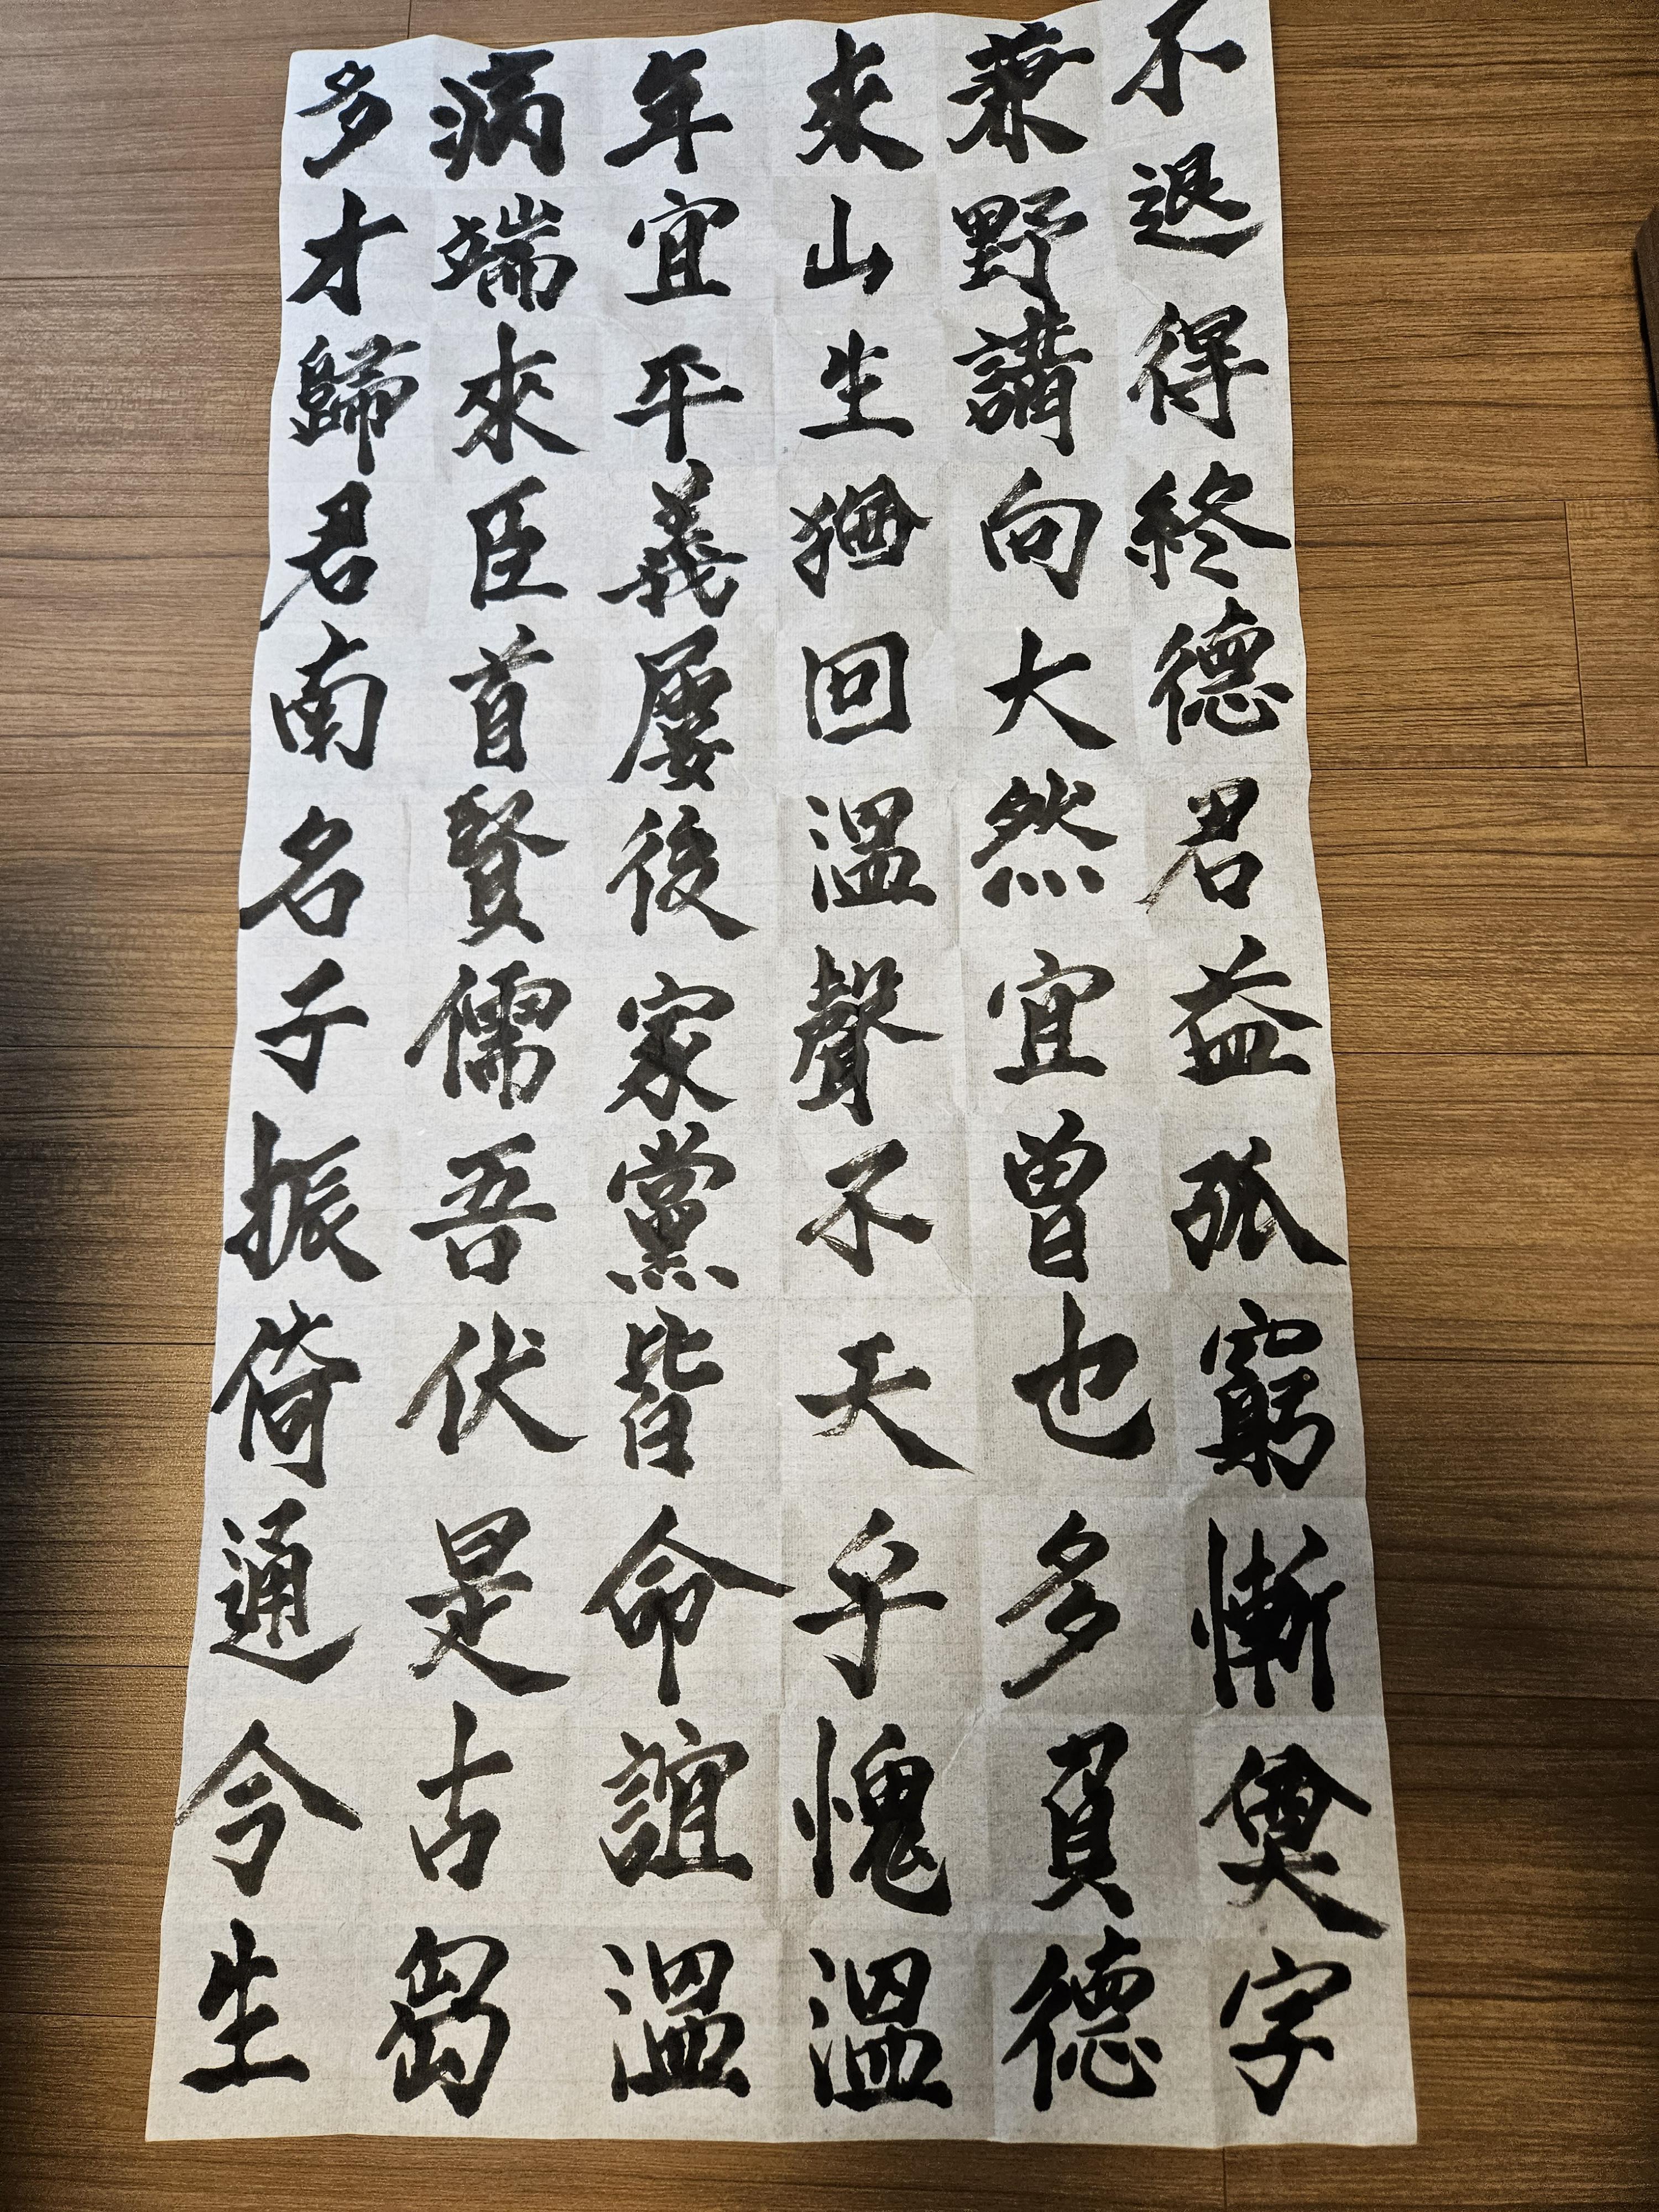 不退得終德君益孤窮慚奠字
兼野講向大然宜曾也多負德
來山生猶回溫聲不天乎愧溫
年宜平義屢後家黨皆命誼溫
病端來臣首賢儒吾伏是古芻
多才歸君南名子振倚通令生